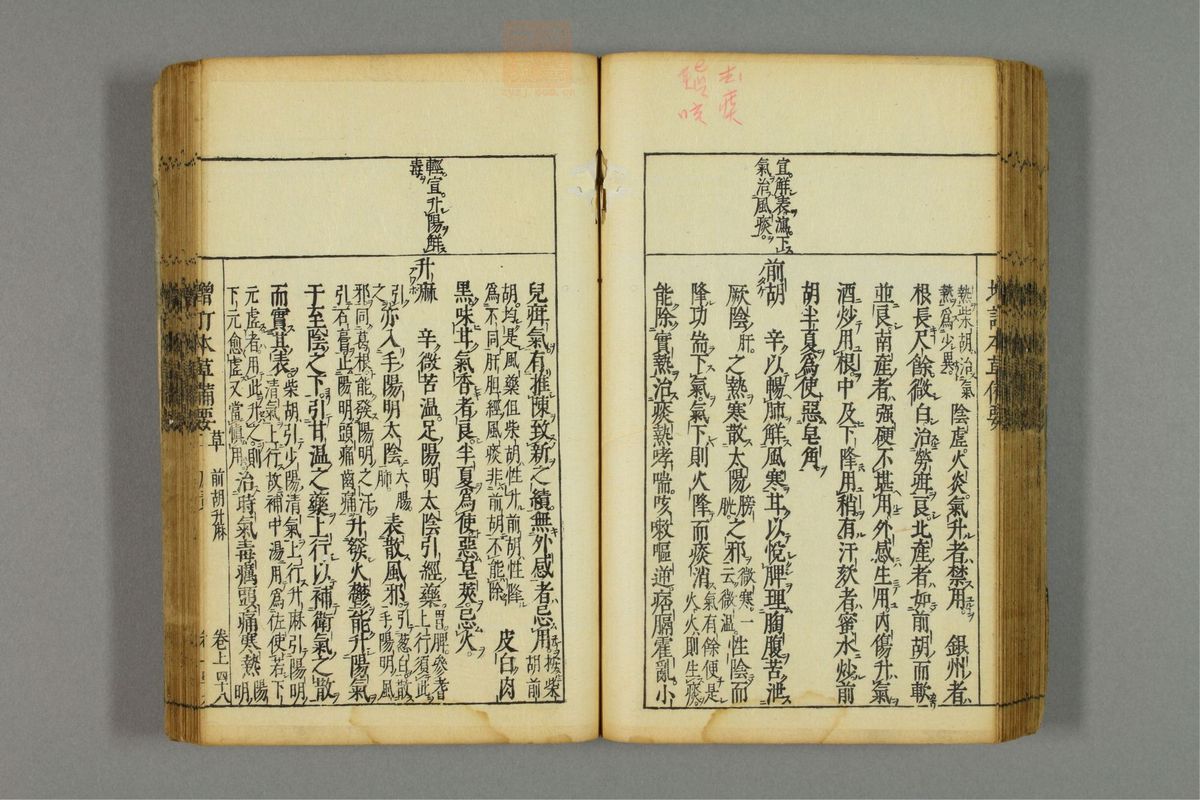 去痰
咳
宜解表瀉下
氣治風痰
熱柴胡治氣
熱爲少異
陰虛火炎氣升者禁用。銀州者
根長尺餘微白治勞疳良北產者如前胡而軟
並良南產者强硬不堪用外感生用內傷升氣
酒炒用根中及下降用稍有汗欬者蜜水炒前
胡半夏爲使惡皂角
前胡 辛以暢肺解風寒甘以悅脾理胸腹苦泄
厥陰肝之熱寒散太陽膀胱之邪微寒一云微溫性陰而
降功耑下氣氣下則火降而痰消氣有餘便是火火則生痰
能除實熱治痰熱哮喘咳嗽嘔逆痞膈霍亂小
輕宣升陽解
毒
兒疳氣有推陳致新之績無外感者忌用按柴胡前
胡均是風藥但柴胡性升前胡性降
爲不同肝胆經風痰非前胡不能除
皮白肉
黑味甘氣香者良半夏爲使惡皂莢忌火
升麻 辛微苦溫足陽明太陰引經藥胃脾參耆上行須此
引之亦入手陽明太陰大腸肺表散風邪引葱白散手陽明風
邪同葛根能發陽明之汗
引石膏止陽明頭痛齒痛
升發火鬱能升陽氣
于至陰之下引甘溫之藥上行以補衛氣之散
而實其表柴胡引少陽清氣上行升麻引陽明清氣上行故補中湯用爲佐使若下
元虛者用此升之則下元愈虛又當慎用
治時氣毒癘頭痛寒熱陽明
增訂本草備要
草 前胡升麻
卷上四十八